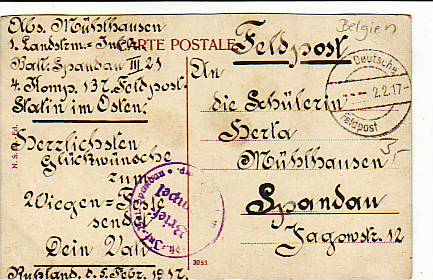 Abs. Mühlhausen
1. Landstrm.-Inf.
CARTE POSTALE
Batl. Spandau III 21
4. Komp. 137. Feldpost-
Statin im Osten.
Herzlichsten
Glückwünsche
zum
Wiegen-Feste
sendet
Dein Vati
Rußland, d. 5. Febr. 1917.
Belgien
Feldpost
An
die Schülerin
Herta
Mühlhausen
Spandau
Jagowstr. 12
Deutsche
2.2.17
Feldpost
Brief
Stempel
3053